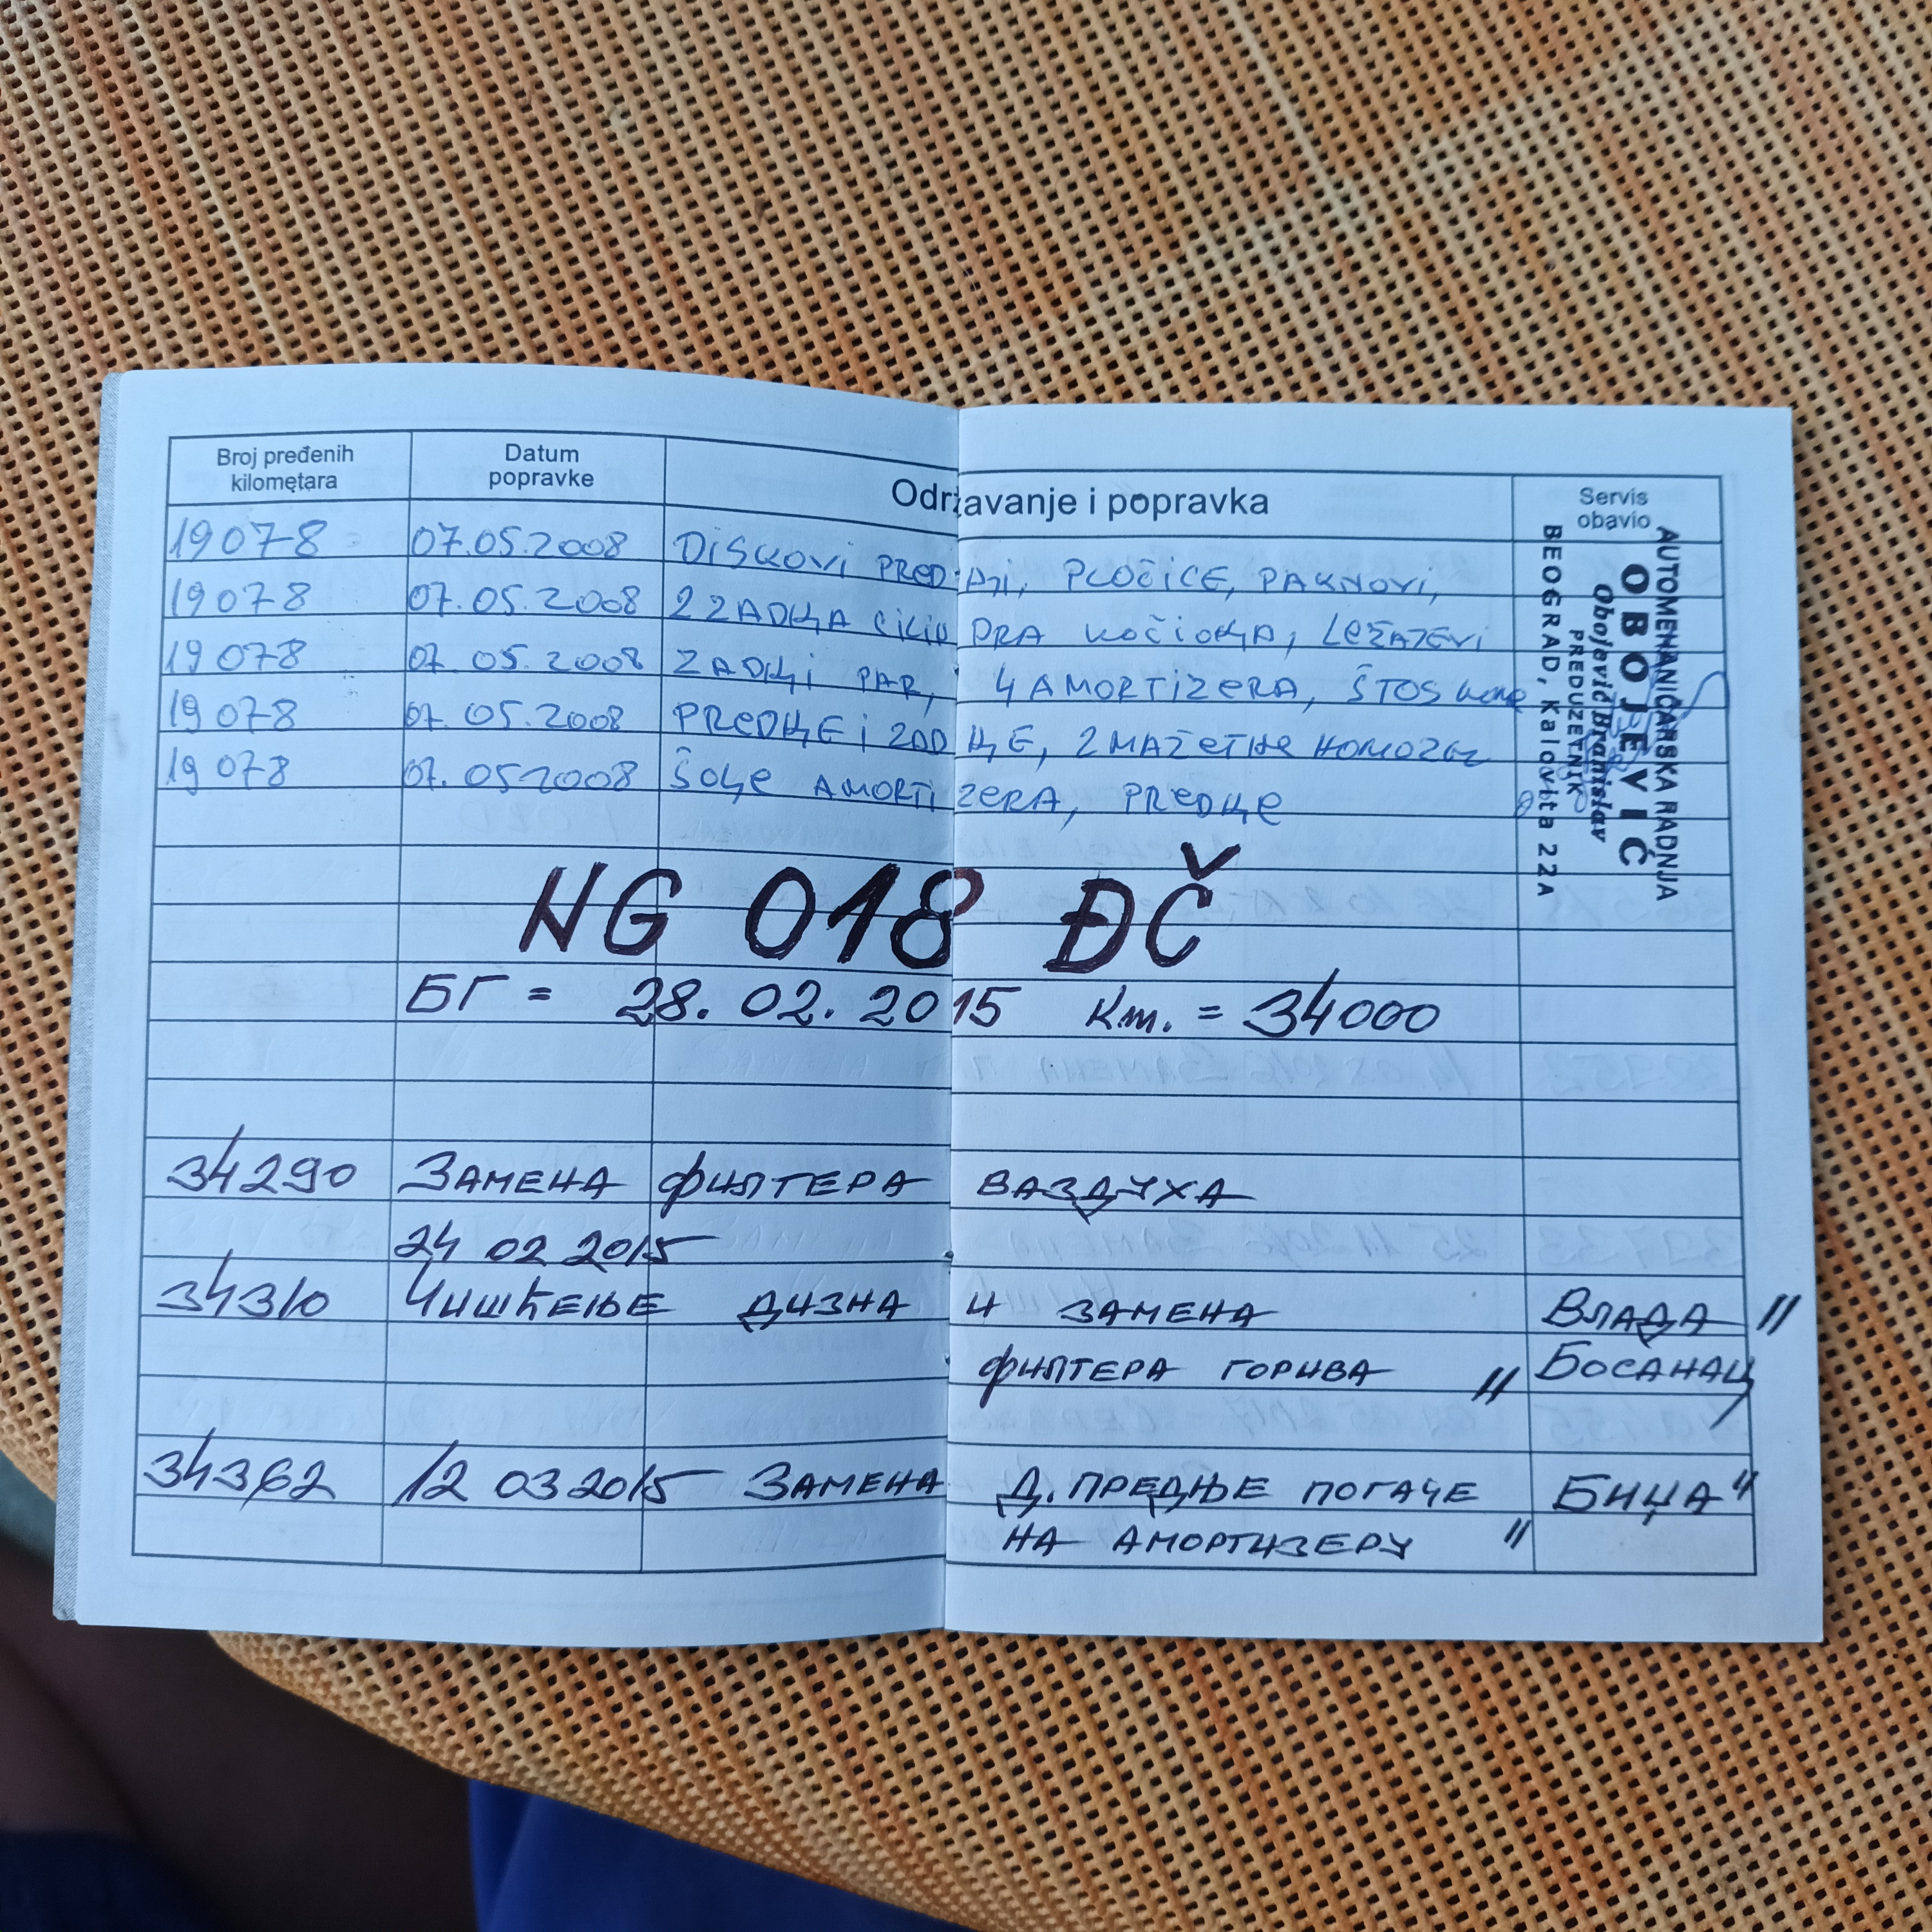 Broj pređenih kilometara Datum popravke Održavanje i popravka Servis obavio
19078 07.05.2008 DiSKOVi PREDњi, PLOČiCE, PAKNOVI,
19078 07.05.2008 2 ZADњA CiLiNDRA KOČIONA, LEŽAJEVi
19078 07.05.2008 ZADњi PAR, 4 AMORTiZERA, ŠTOS
19078 07.05.2008 PREDњE i ZADњE, 2 MAŽETNE HOMOZEL
19078 07.052008 ŠOљE AMORTiZERA, PREDњE
AUTOMEHANIČARSKA RADNJA
OBOJEVIĆ
Obojević Branislav
PREDUZETNIK
BEOGRAD, Kalovita 22A
NG 018 ĐČ
БГ = 28. 02. 2015 Km. = 34000
34290 ЗАМЕНА ФИЛТЕРА ВАЗДУХА
24 02 2015
34310 ЧИШЋЕЊЕ ДИЗНА И ЗАМЕНА ВЛАДА "
ФИЛТЕРА ГОРИВА " БОСАНАЦ
34362 12 03 2015 ЗАМЕНА Д. ПРЕДЊЕ ПОГАЧЕ БИЏА "
НА АМОРТИЗЕРУ "